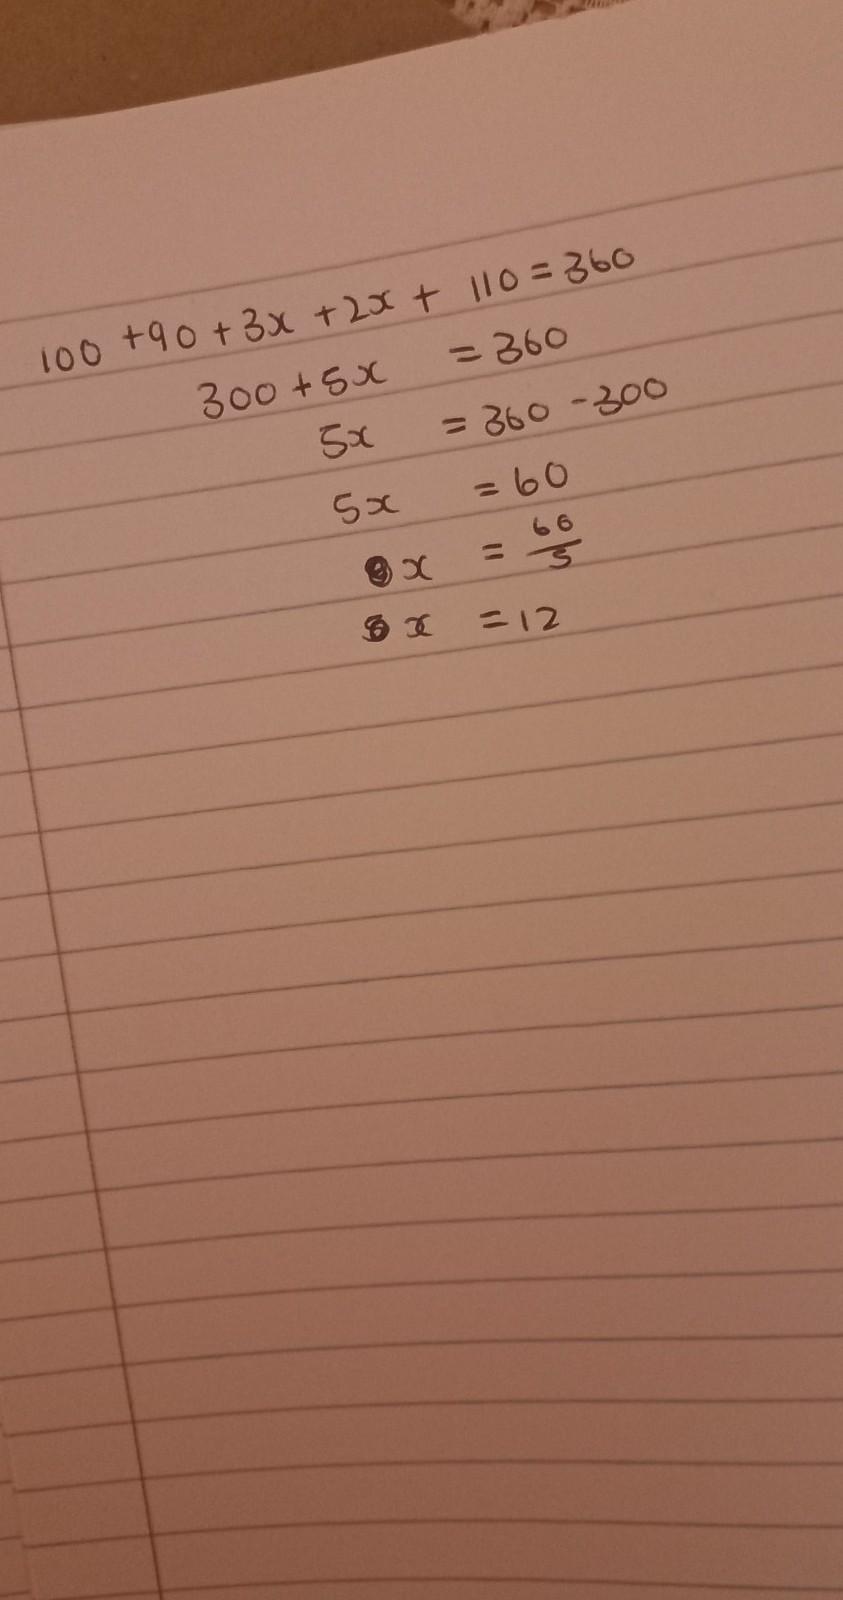 100 +90 + 3x + 2x + 110 = 360
300 + 5x = 360
5x = 360 - 300
5x = 60
x = 60/5
x = 12